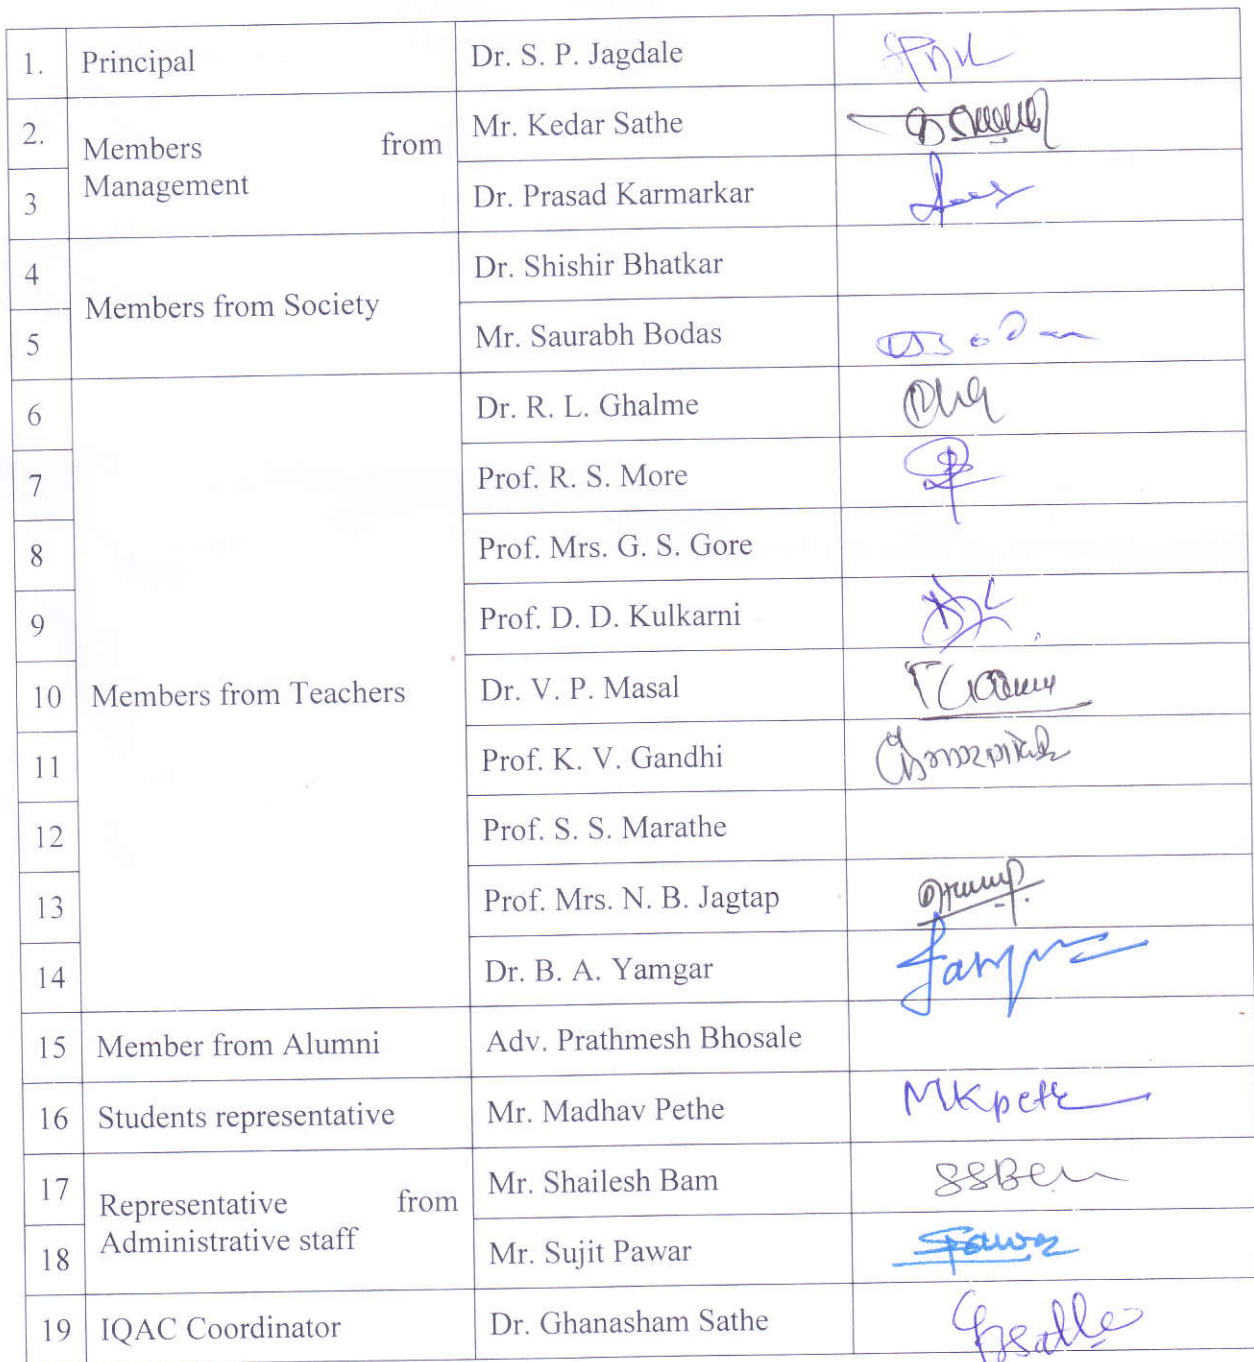 1. Principal Dr. S. P. Jagdale
2. Members from Management Mr. Kedar Sathe
3 Dr. Prasad Karmarkar
4 Members from Society Dr. Shishir Bhatkar
5 Mr. Saurabh Bodas
6 Members from Teachers Dr. R. L. Ghalme
7 Prof. R. S. More
8 Prof. Mrs. G. S. Gore
9 Prof. D. D. Kulkarni
10 Dr. V. P. Masal
11 Prof. K. V. Gandhi
12 Prof. S. S. Marathe
13 Prof. Mrs. N. B. Jagtap
14 Dr. B. A. Yamgar
15 Member from Alumni Adv. Prathmesh Bhosale
16 Students representative Mr. Madhav Pethe
17 Representative from Administrative staff Mr. Shailesh Bam
18 Mr. Sujit Pawar
19 IQAC Coordinator Dr. Ghanasham Sathe